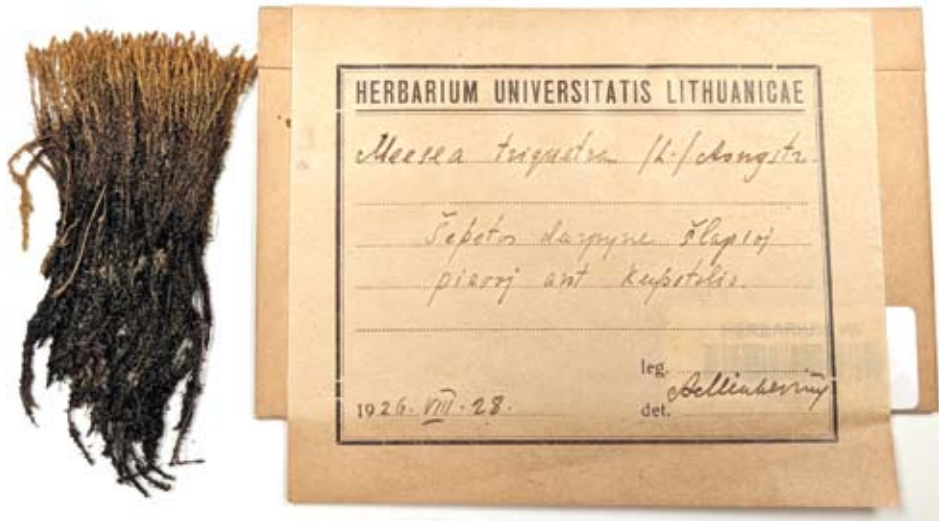 HERBARIUM UNIVERSITATIS LITHUANICAE
Meesea triquetra /L./ Aongstr.
Šepetos durpyne šlapioj
pievoj ant kupstelio.
leg.
1926. VIII. 28.
det.
HERBARIUM